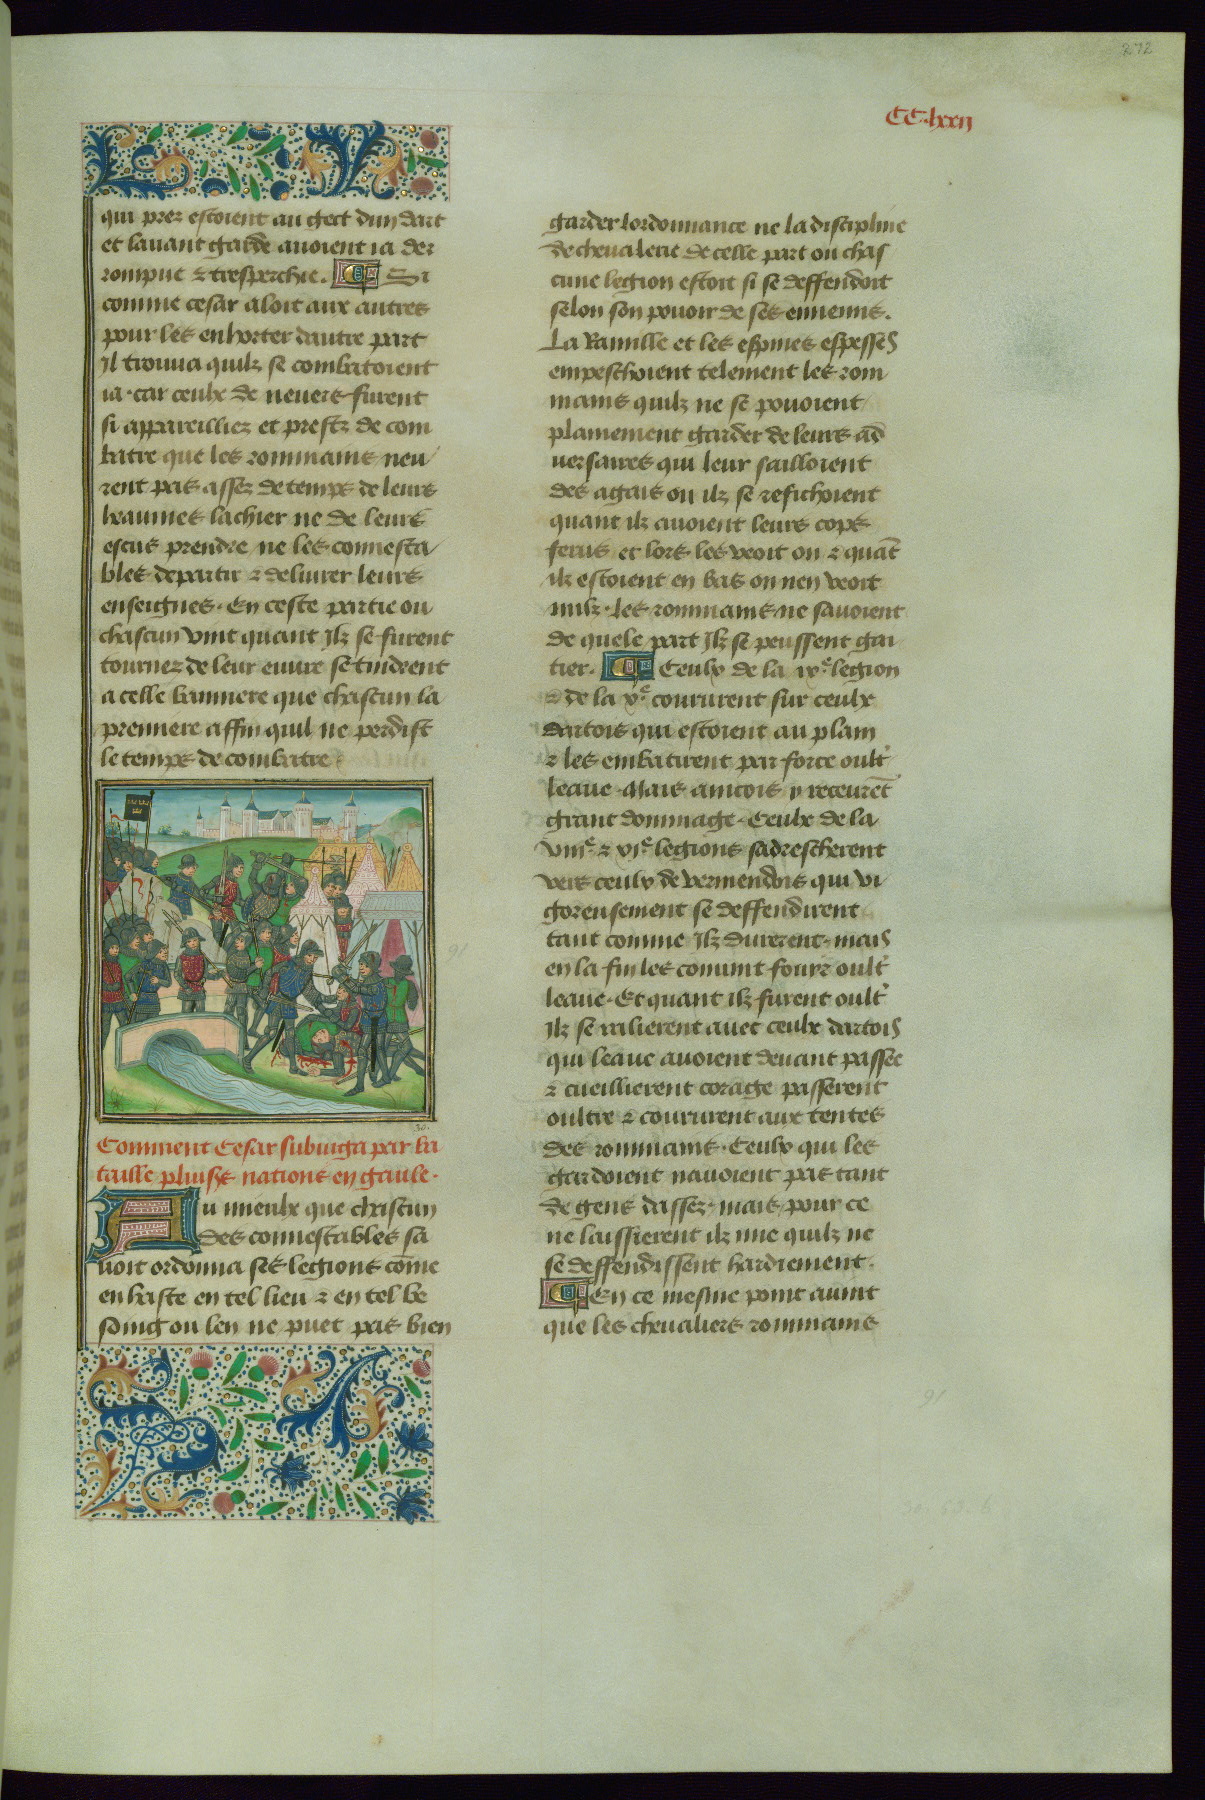 272
CC.lxxii
qui prez estoient au gect dun dart
et lauant garde auoient ia der
rompue & tresperchie. Si
comme cesar aloit aux autres
pour les enhorter dautre part
Il trouua quilz se combatoient
ia. car ceulx de neuers furent
si appareilliez et prestz de com
batre que les rommains neu
rent pas assez de temps de leurs
heaumes lachier ne de leurs
escus prendre ne les connesta
bles departir & deliurer leurs
enseignes. En ceste partie ou
chascun vint quant Ilz se furent
tournez de leur euure se tindrent
a celle banniere que chascun la
premiere affin quil ne perdist
le temps de combatre
30.
Comment Cesar subiuga par ba
taille pluiss nations en gaule.
Au mieulx que chascun
des connestables sa
uoit ordonna ses legions come
en haste en tel lieu & en tel be
soing ou len ne puet pas bien
garder lordonnance ne la discipline
de cheualerie de celle part ou chas
cune legion estoit si se deffendoit
selon son pouoir de ses ennemis.
La Ramille et les espines espesses
empeschoient telement les rom
mains quilz ne se pouoient
plainement garder de leurs ad
uersaires qui leur sailloient
des agais ou ilz se refichoient
quant ilz auoient leurs cops
ferus et lors les veoit on & quat
ilz estoient en bas on nen veoit
nulz. les rommains ne sauoient
de quele part Ilz se peussent gai
tier. Ceulx de la ix.e legion
& de la x.e coururent sur ceulx
dartois qui estoient au plain
& les embatirent par force oult'
leaue. Mais aincois y receuret
grant dommage. Ceulx de la
viii.e & vi.e legions sadrescherent
vers ceulx de vermendois qui vi
goreusement se deffendirent
tant comme Ilz durerent. mais
en la fin les conuint fouyr oult'
leaue. Et quant ilz furent oult'
Ilz se ralierent auec ceulx dartois
qui leaue auoient deuant passee
& cueillierent corage passerent
oultre & coururent aux tentes
des rommains. Ceulx qui les
gardoient nauoient pas tant
de gens dassez. mais pour ce
ne laissierent ilz mie quilz ne
se deffendissent hardiement.
En ce mesme point auint
que les cheualiers rommains
91
91